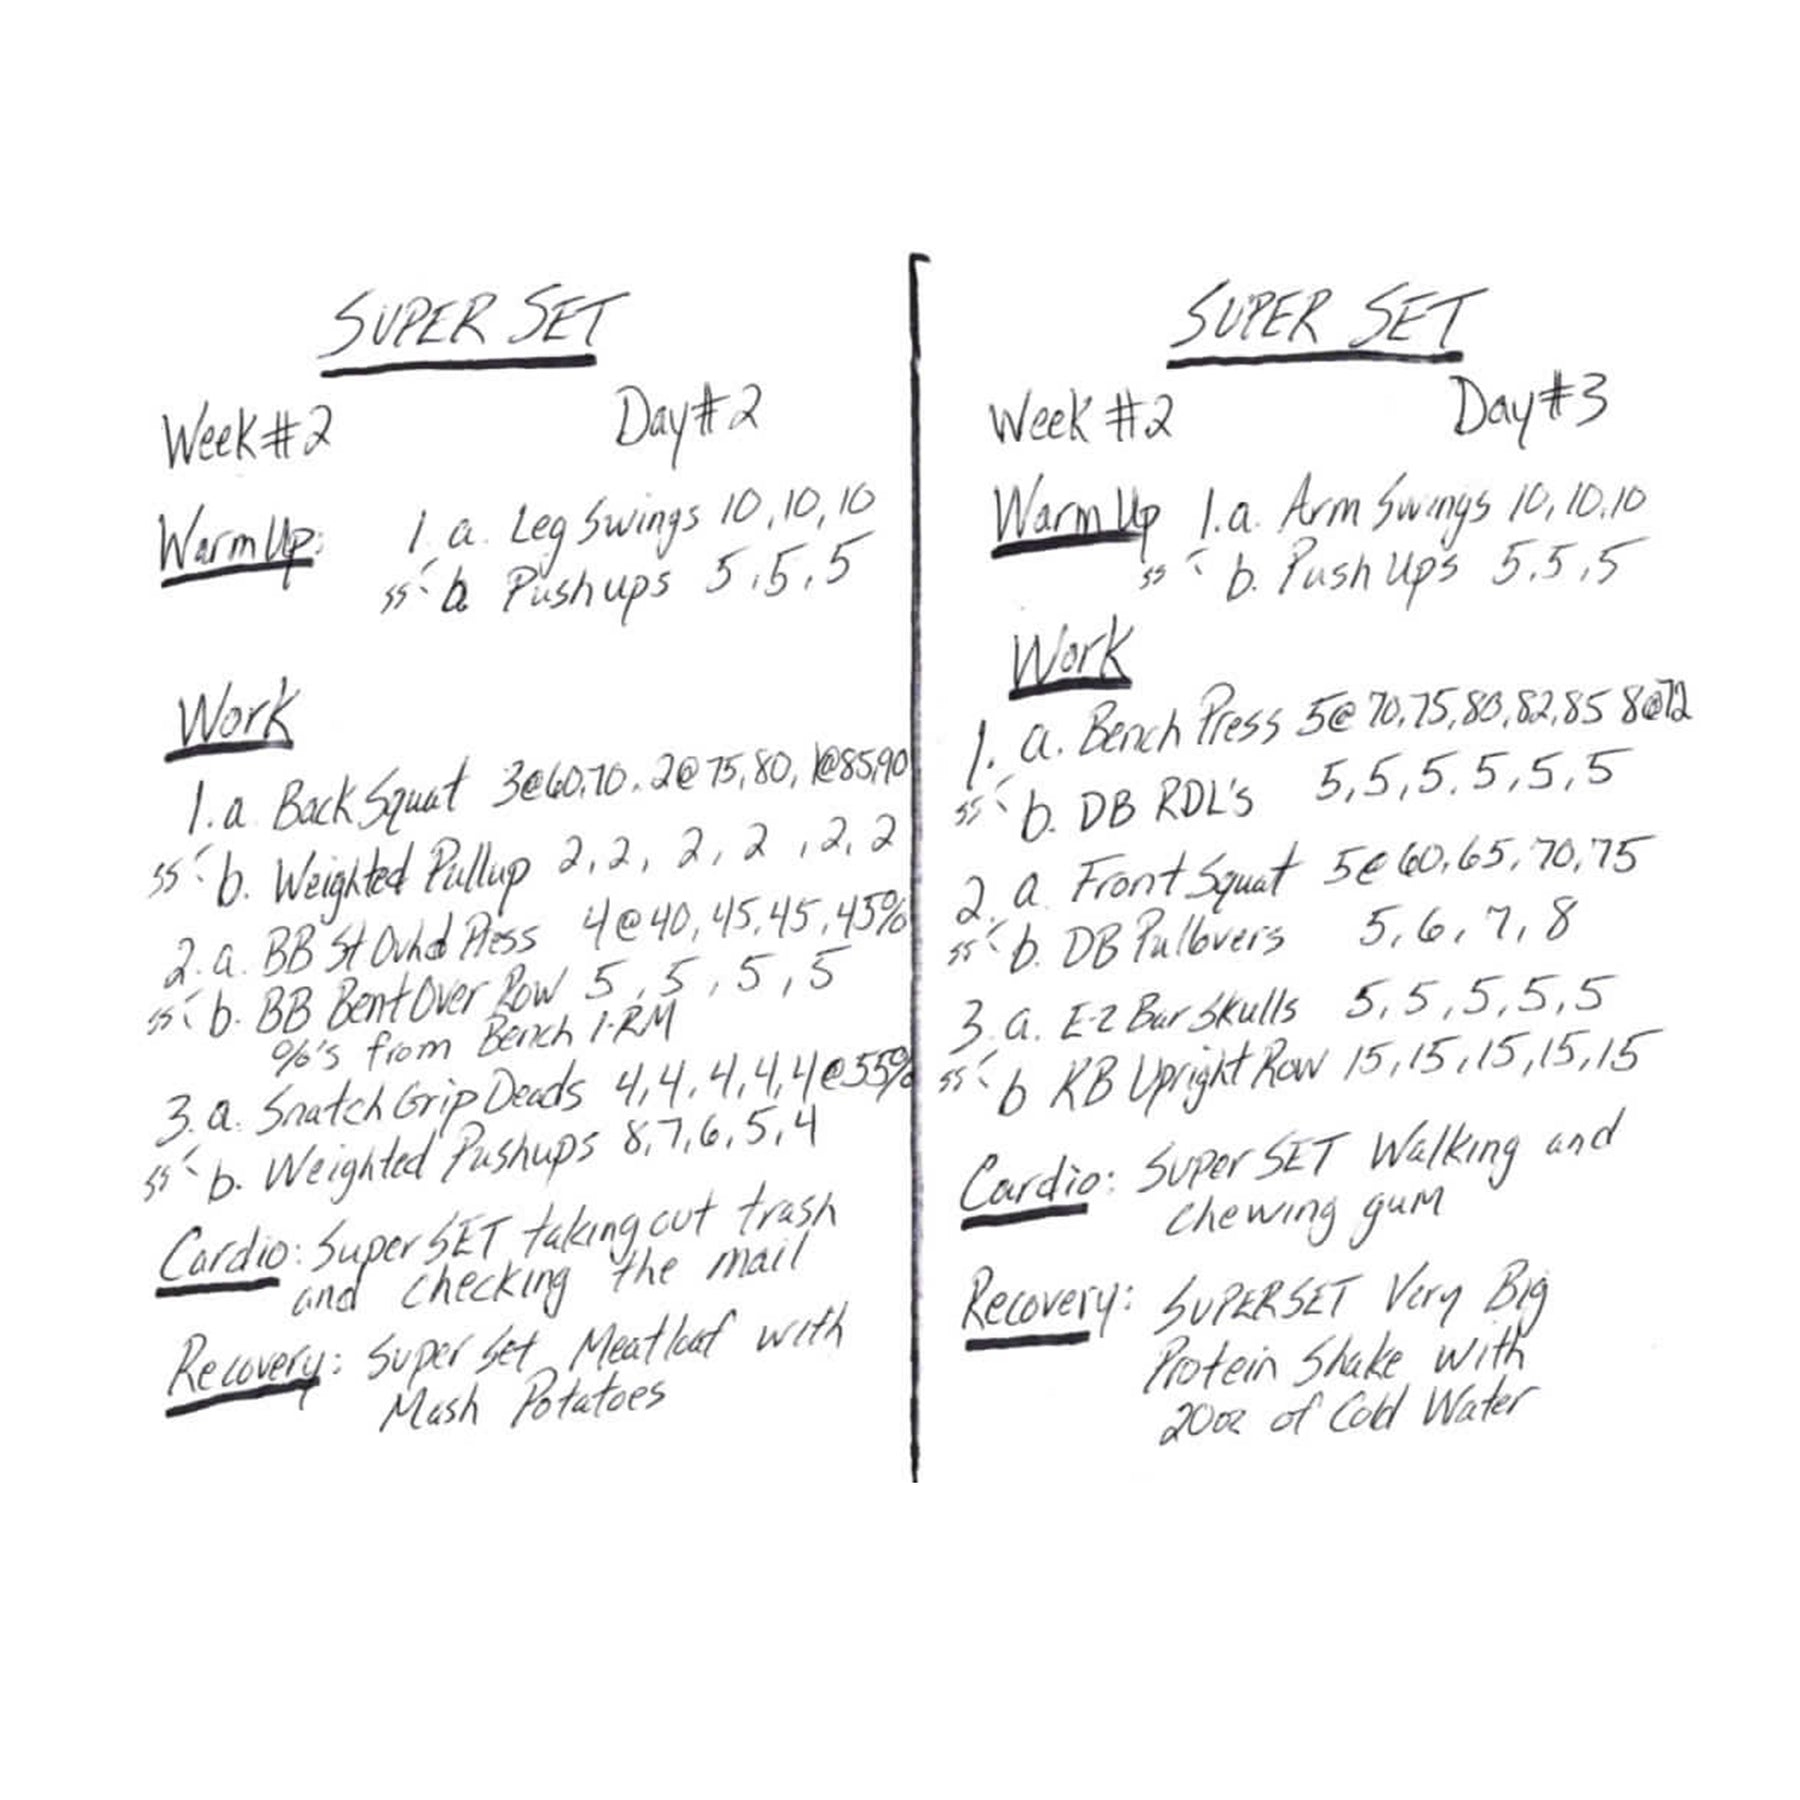 SUPER SET
Week #2 Day #2
Warm Up: 1. a. Leg Swings 10, 10, 10
ss b. Pushups 5, 5, 5
Work
1. a. Back Squat 3@60,70, 2@75,80, 1@85,90
ss b. Weighted Pullup 2, 2, 2, 2, 2, 2
2. a. BB St Ovhd Press 4@40, 45, 45, 45%
ss b. BB Bent Over Row 5, 5, 5, 5
%'s from Bench 1-RM
3. a. Snatch Grip Deads 4, 4, 4, 4, 4@55%
ss b. Weighted Pushups 8, 7, 6, 5, 4
Cardio: Super SET taking out trash
and checking the mail
Recovery: Super Set Meatloaf with
Mash Potatoes
SUPER SET
Week #2 Day #3
Warm Up 1. a. Arm Swings 10, 10, 10
ss b. Push Ups 5, 5, 5
Work
1. a. Bench Press 5@70, 75, 80, 82, 85 8@72
ss b. DB RDL's 5, 5, 5, 5, 5, 5
2. a. Front Squat 5@60, 65, 70, 75
ss b. DB Pullovers 5, 6, 7, 8
3. a. E-Z Bar Skulls 5, 5, 5, 5, 5
ss b KB Upright Row 15, 15, 15, 15, 15
Cardio: Super SET Walking and
chewing gum
Recovery: SUPERSET Very Big
Protein Shake with
20oz of Cold Water